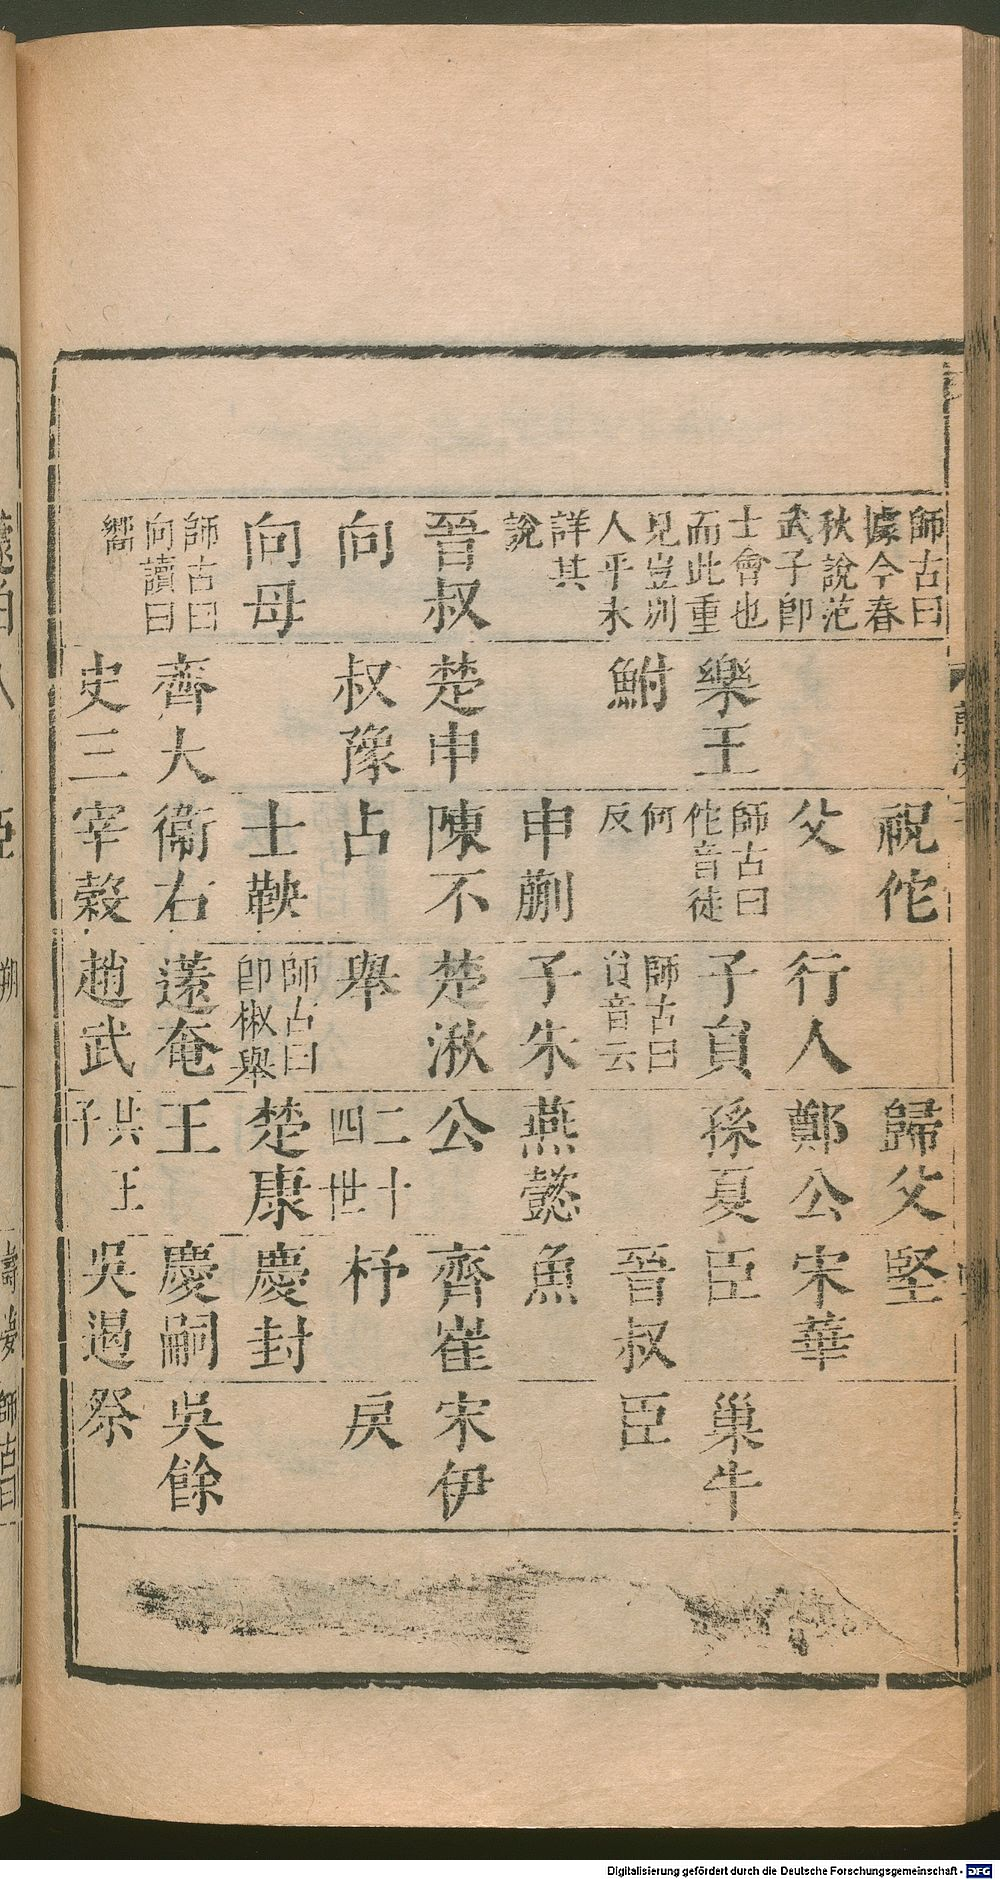 師古曰
據今春
秋說范
武子卽
士會也
而此重
見豈別
人乎未
詳其
說
晉叔
向
向母
師古曰
向讀曰
嚮
樂王
鮒
楚申
叔豫
齊大
史三
祝佗
父
師古曰
佗音徒
何
反
申蒯
陳不
占
士鞅
衞右
宰榖
行人
子員
師古曰
員音云
子朱
楚湫
舉
師古曰
卽椒舉
薳奄
趙武
歸父
鄭公
孫夏
燕懿
公
二十
四世
楚康
王
共王
子
堅
宋華
臣
晉叔
魚
齊崔
杼
慶封
慶嗣
吳遏
巢牛
臣
宋伊
戾
吳餘
祭
Digitalisierung gefördert durch die Deutsche Forschungsgemeinschaft - DFG